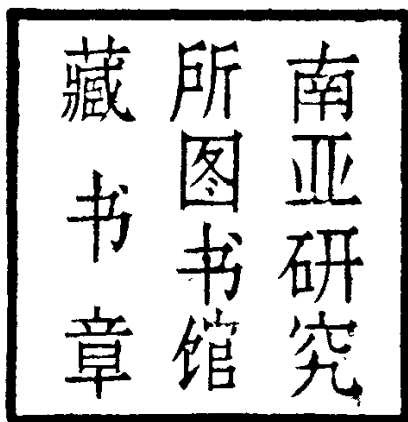 南亚研究
所图书馆
藏书章